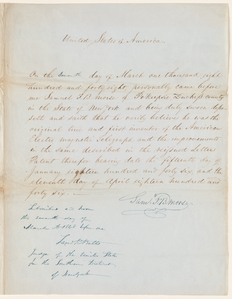 United States of America
On the seventh day of March one thousand eight
hundred and forty eight personally came before
me Samuel F. B. Morse of Po'keepsie Duchess County
in the State of New York and being duly sworn doth
depose and saith that he verily believes he was the
original and first inventor of the American
Electro magnetic Telegraph and the improvements
in the same described in the reissued Letters
Patent therefor bearing date the fifteenth day of
January eighteen hundred and forty six, and the
eleventh day of April eighteen hundred and
forty six.
Saml. F. B. Morse
Subscribed and sworn
the seventh day of
March 1848 before me
Judge of the United States
in the Southern District
of New York